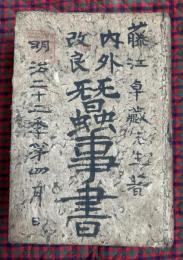 藤江卓蔵先生著
内外
改良
蚕事書
明治二十二年第四月日